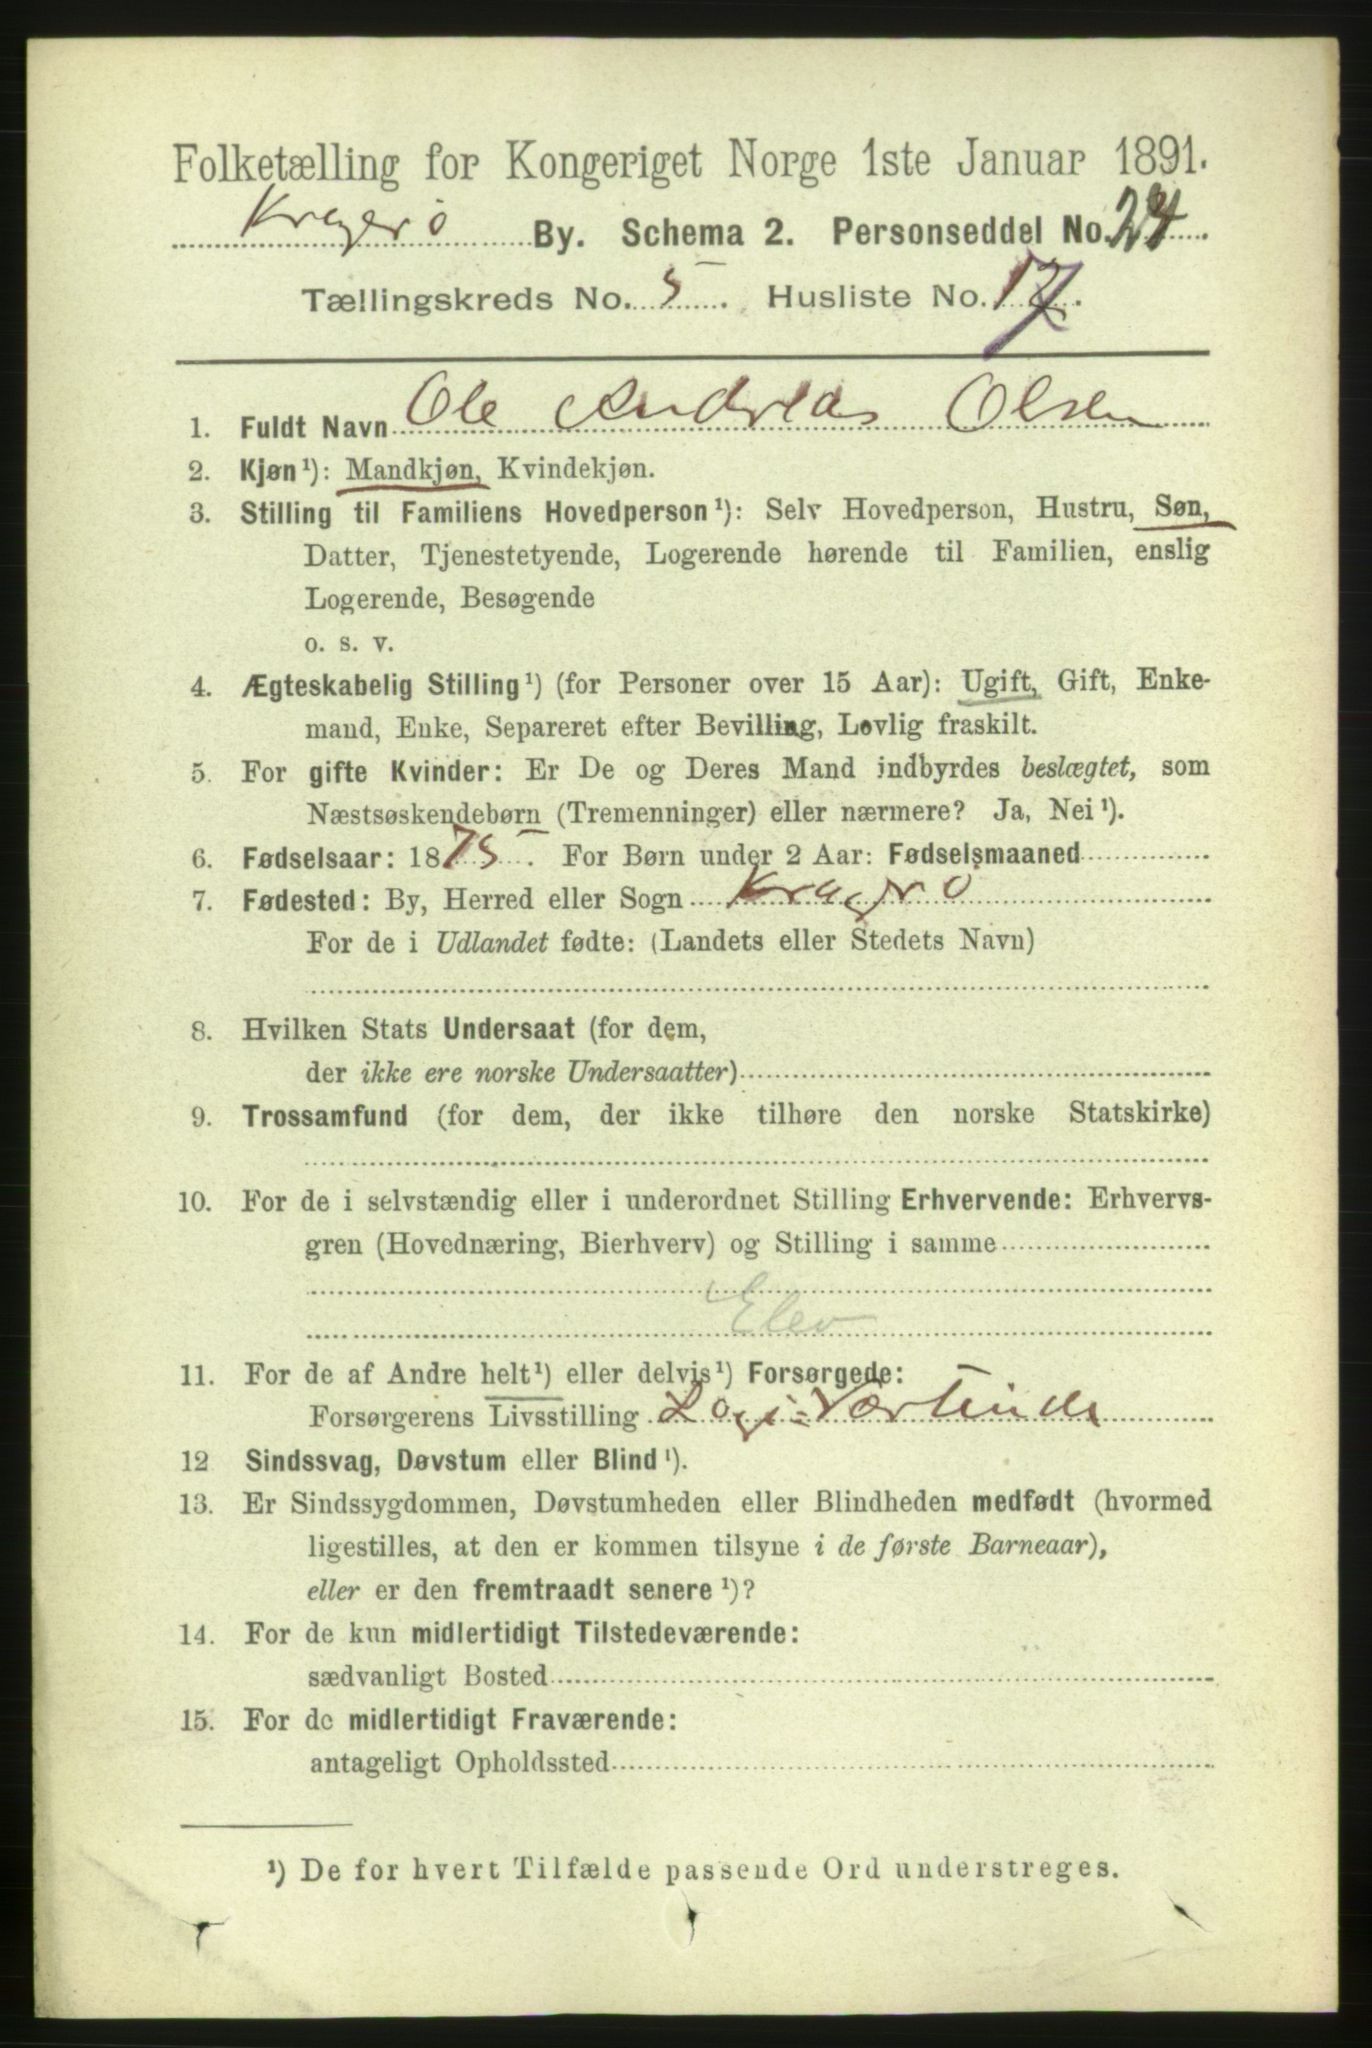 Folketælling for Kongeriget Norge 1ste Januar 1891.
Kragerö By. Schema 2. Personseddel No. 24
Tællingskreds No. 5. Husliste No. 17.
1. Fuldt Navn Ole Andreas Olsen
2. Kjøn¹): Mandkjøn, Kvindekjøn.
3. Stilling til Familiens Hovedperson¹): Selv Hovedperson, Hustru, Søn,
Datter, Tjenestetyende, Logerende hørende til Familien, enslig
Logerende, Besøgende
o. s. v.
4. Ægteskabelig Stilling¹) (for Personer over 15 Aar): Ugift, Gift, Enke-
mand, Enke, Separeret efter Bevilling, Lovlig fraskilt.
5. For gifte Kvinder: Er De og Deres Mand indbyrdes beslægtet, som
Næstsøskendebørn (Tremenninger) eller nærmere? Ja, Nei¹).
6. Fødselsaar: 1875. For Børn under 2 Aar: Fødselsmaaned
7. Fødested: By, Herred eller Sogn Kragerö
For de i Udlandet fødte: (Landets eller Stedets Navn)
8. Hvilken Stats Undersaat (for dem,
der ikke ere norske Undersaatter)
9. Trossamfund (for dem, der ikke tilhøre den norske Statskirke)
10. For de i selvstændig eller i underordnet Stilling Erhvervende: Erhvervs-
gren (Hovednæring, Bierhverv) og Stilling i samme
Elev
11. For de af Andre helt¹) eller delvis¹) Forsørgede:
Forsørgerens Livsstilling Logi-Værtinde
12 Sindssvag, Døvstum eller Blind¹).
13. Er Sindssygdommen, Døvstumheden eller Blindheden medfødt (hvormed
ligestilles, at den er kommen tilsyne i de første Barneaar),
eller er den fremtraadt senere¹)?
14. For de kun midlertidigt Tilstedeværende:
sædvanligt Bosted
15. For de midlertidigt Fraværende:
antageligt Opholdssted
¹) De for hvert Tilfælde passende Ord understreges.